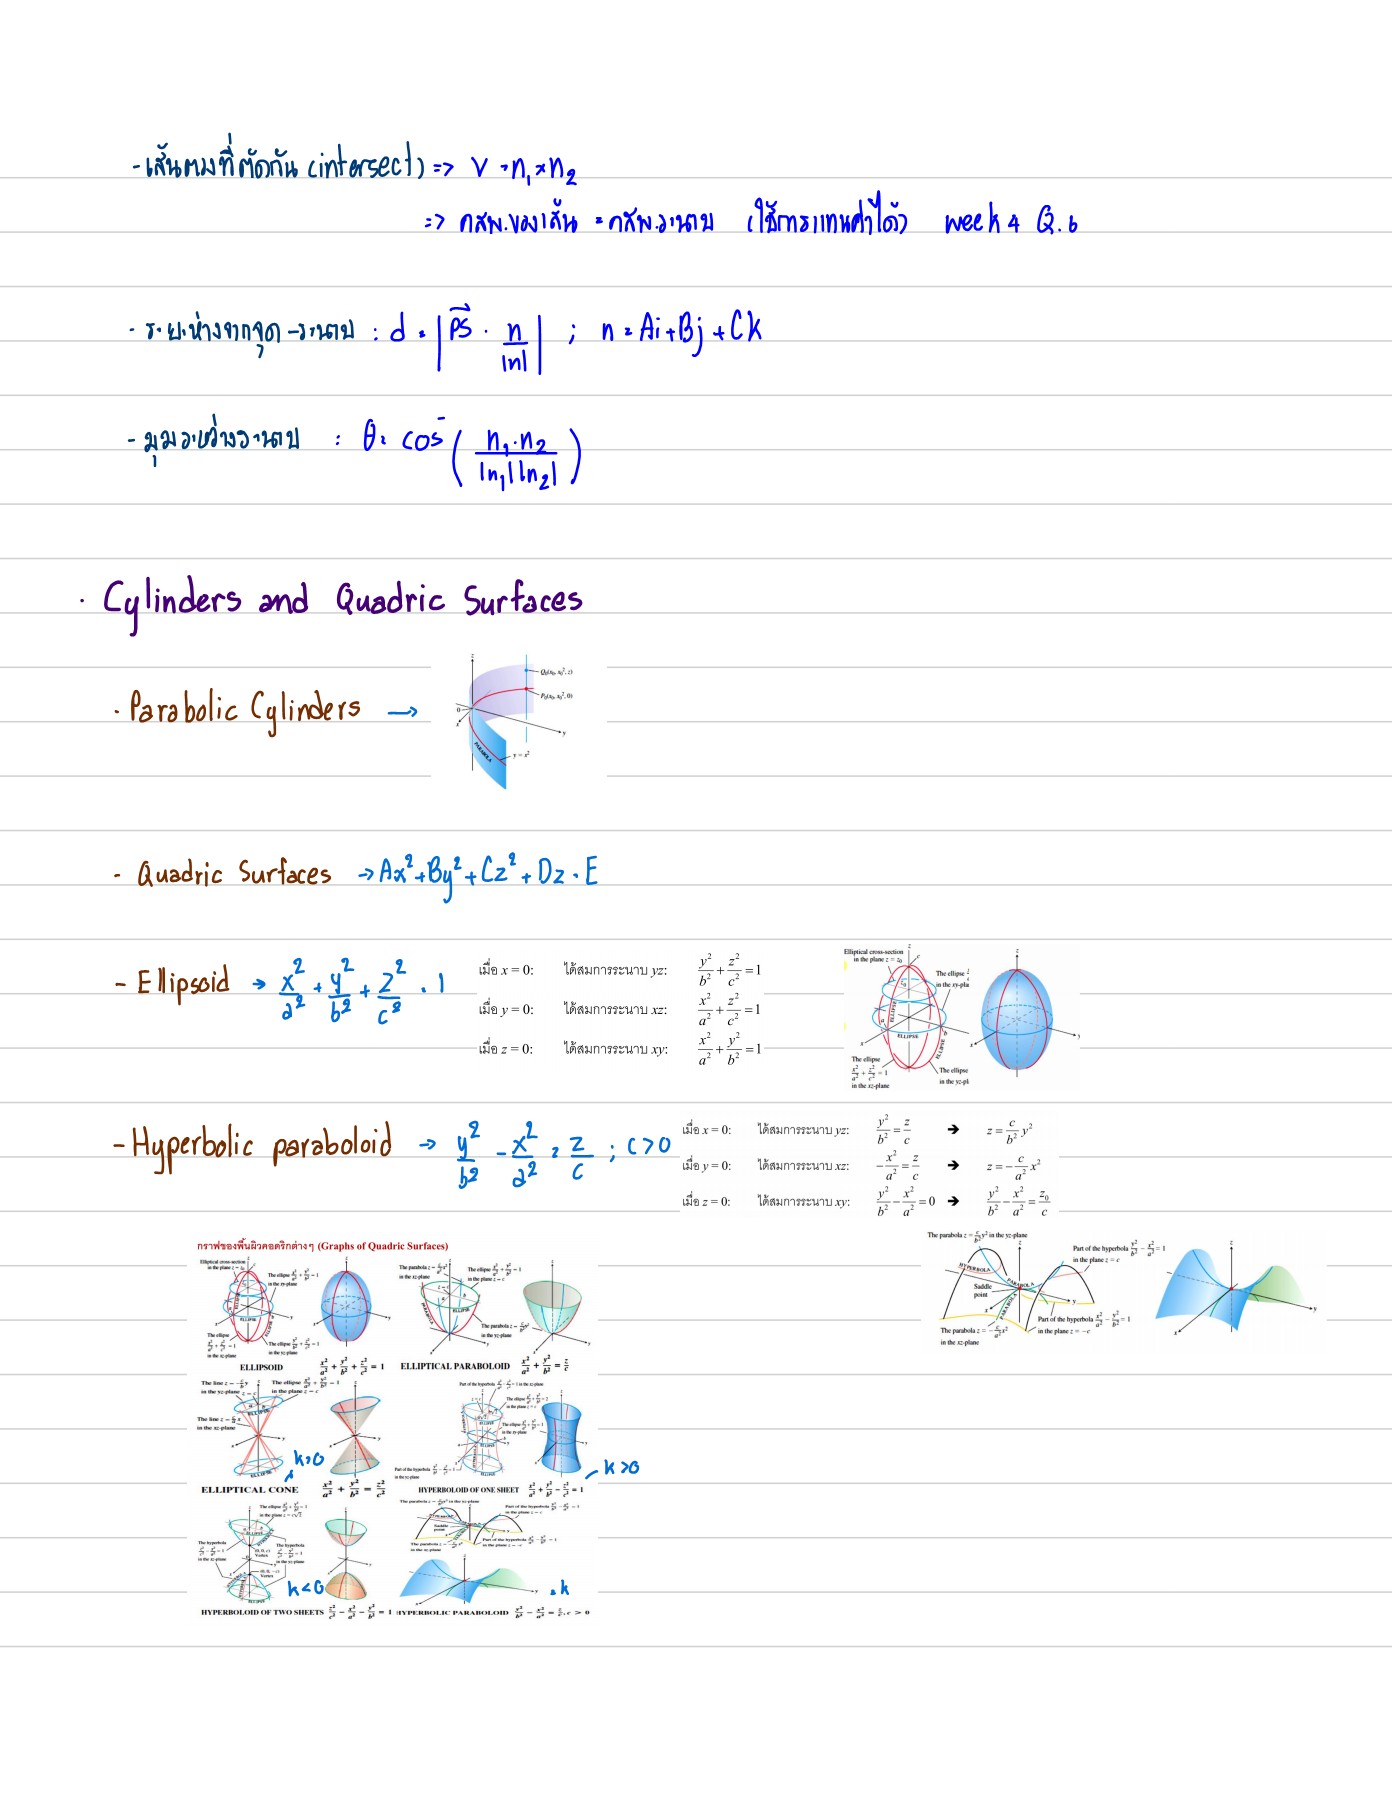 - เส้นตรงที่ตัดกัน (intersect) => V = n₁ × n₂
=> คสพ.ของเส้น = คสพ.ระนาบ (ใช้การแทนค่าได้) week 4 Q. 6
· ระยะห่างจากจุด - ระนาบ : d = | PS⃗ · n/|n| | ; n = Ai + Bj + Ck
- มุมระหว่างระนาบ : θ = cos⁻ ( n₁·n₂ / |n₁||n₂| )
· Cylinders and Quadric Surfaces
· Parabolic Cylinders →
z
Q₀(x₀, x₀², z)
P₀(x₀, x₀², 0)
0
x
y
PARABOLA
y = x²
- Quadric Surfaces → Ax² + By² + Cz² + Dz = E
- Ellipsoid → x²/a² + y²/b² + z²/c² = 1
เมื่อ x = 0: ได้สมการระนาบ yz: y²/b² + z²/c² = 1
เมื่อ y = 0: ได้สมการระนาบ xz: x²/a² + z²/c² = 1
เมื่อ z = 0: ได้สมการระนาบ xy: x²/a² + y²/b² = 1
Elliptical cross-section
in the plane z = z₀
The ellipse
in the xy-pla
ELLIPSE
The ellipse
x²/a² + z²/c² = 1
in the xz-plane
The ellipse
in the yz-pl
- Hyperbolic paraboloid → y²/b² - x²/a² = z/c ; c > 0
เมื่อ x = 0: ได้สมการระนาบ yz: y²/b² = z/c → z = c/b² y²
เมื่อ y = 0: ได้สมการระนาบ xz: -x²/a² = z/c → z = -c/a² x²
เมื่อ z = 0: ได้สมการระนาบ xy: y²/b² - x²/a² = 0 → y²/b² - x²/a² = z₀/c
The parabola z = c/b² y² in the yz-plane
Part of the hyperbola y²/b² - x²/a² = 1
in the plane z = c
HYPERBOLA
PARABOLA
Saddle
point
Part of the hyperbola x²/a² - y²/b² = 1
in the plane z = -c
The parabola z = -c/a² x²
in the xz-plane
กราฟของพื้นผิวคอดริกต่างๆ (Graphs of Quadric Surfaces)
Elliptical cross-section
in the plane z = z₀
ELLIPSOID x²/a² + y²/b² + z²/c² = 1
ELLIPTICAL PARABOLOID x²/a² + y²/b² = z/c
k=0
k>0
ELLIPTICAL CONE x²/a² + y²/b² = z²/c²
HYPERBOLOID OF ONE SHEET x²/a² + y²/b² - z²/c² = 1
k<0
=k
HYPERBOLOID OF TWO SHEETS z²/c² - x²/a² - y²/b² = 1
HYPERBOLIC PARABOLOID y²/b² - x²/a² = z/c, c > 0